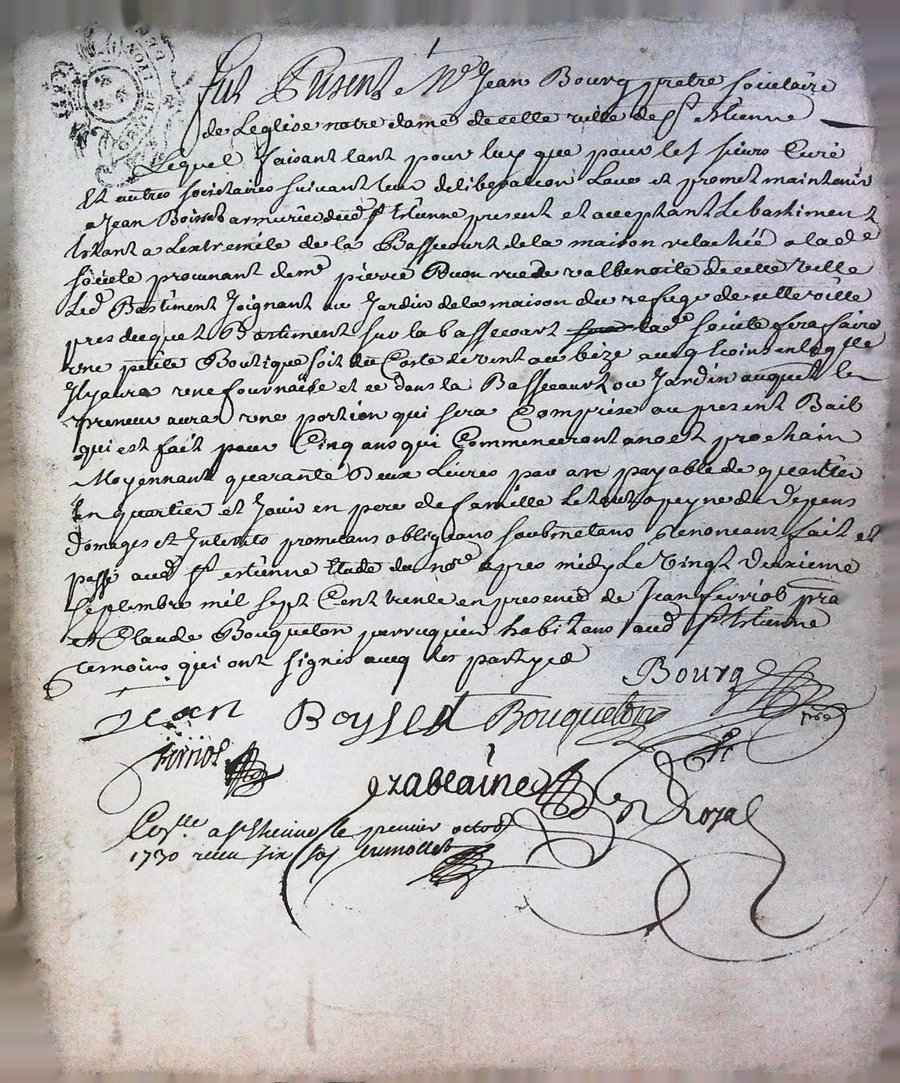 fut Present Mre Jean Bourg pretre societaire
de Leglise notre dame de cette ville de st Etienne
Lequel faisant tant pour luy que pour les sieurs Curé
Et autres societaires suivant leur deliberation Loue et promet maintenir
a Jean Boisset armurie dud st Etienne present et acceptant Le bastiment
Estant a Lextremité de la Bassecourt de la maison relachée a lade
société provenant de mr pierre Duon rue de valbenoite de cette ville
Led Bastiment Joignant au Jardin de la maison du refuge de cette ville
pres duquel Bastiment sur la bassecourt lad societé fera faire
une petite Boutique soit du Coste de vent ou bize au coin en laqlle
Il y aura une fournaise et ce dans la Bassecourt ou Jardin auquel le
preneur aura une portion qui sera Comprise au present Bail
qui est fait pour Cinq ans qui Commenceront a noel prochain
Moyennant quarante Deux Livres par an payable de quartier
En quartier et Jouir en pere de famille Le tout a peyne de Depens
Domages et Interets promettans obligeans soubmetans Renonceans fait et
passé aud st estienne Etude du nore apres midy Le vingt Deuxieme
septembre mil sept Cent trente en presence de Jean ferriol pra
et Claude Bouqueton perruquier habitans aud st Etienne
temoins qui ont signés avec les partyes
Bourg
Jean Boysset Bouqueton
ferriol
ezablaine
n Royal
Coslle a st Etienne le premier octob
1730 receu six sols